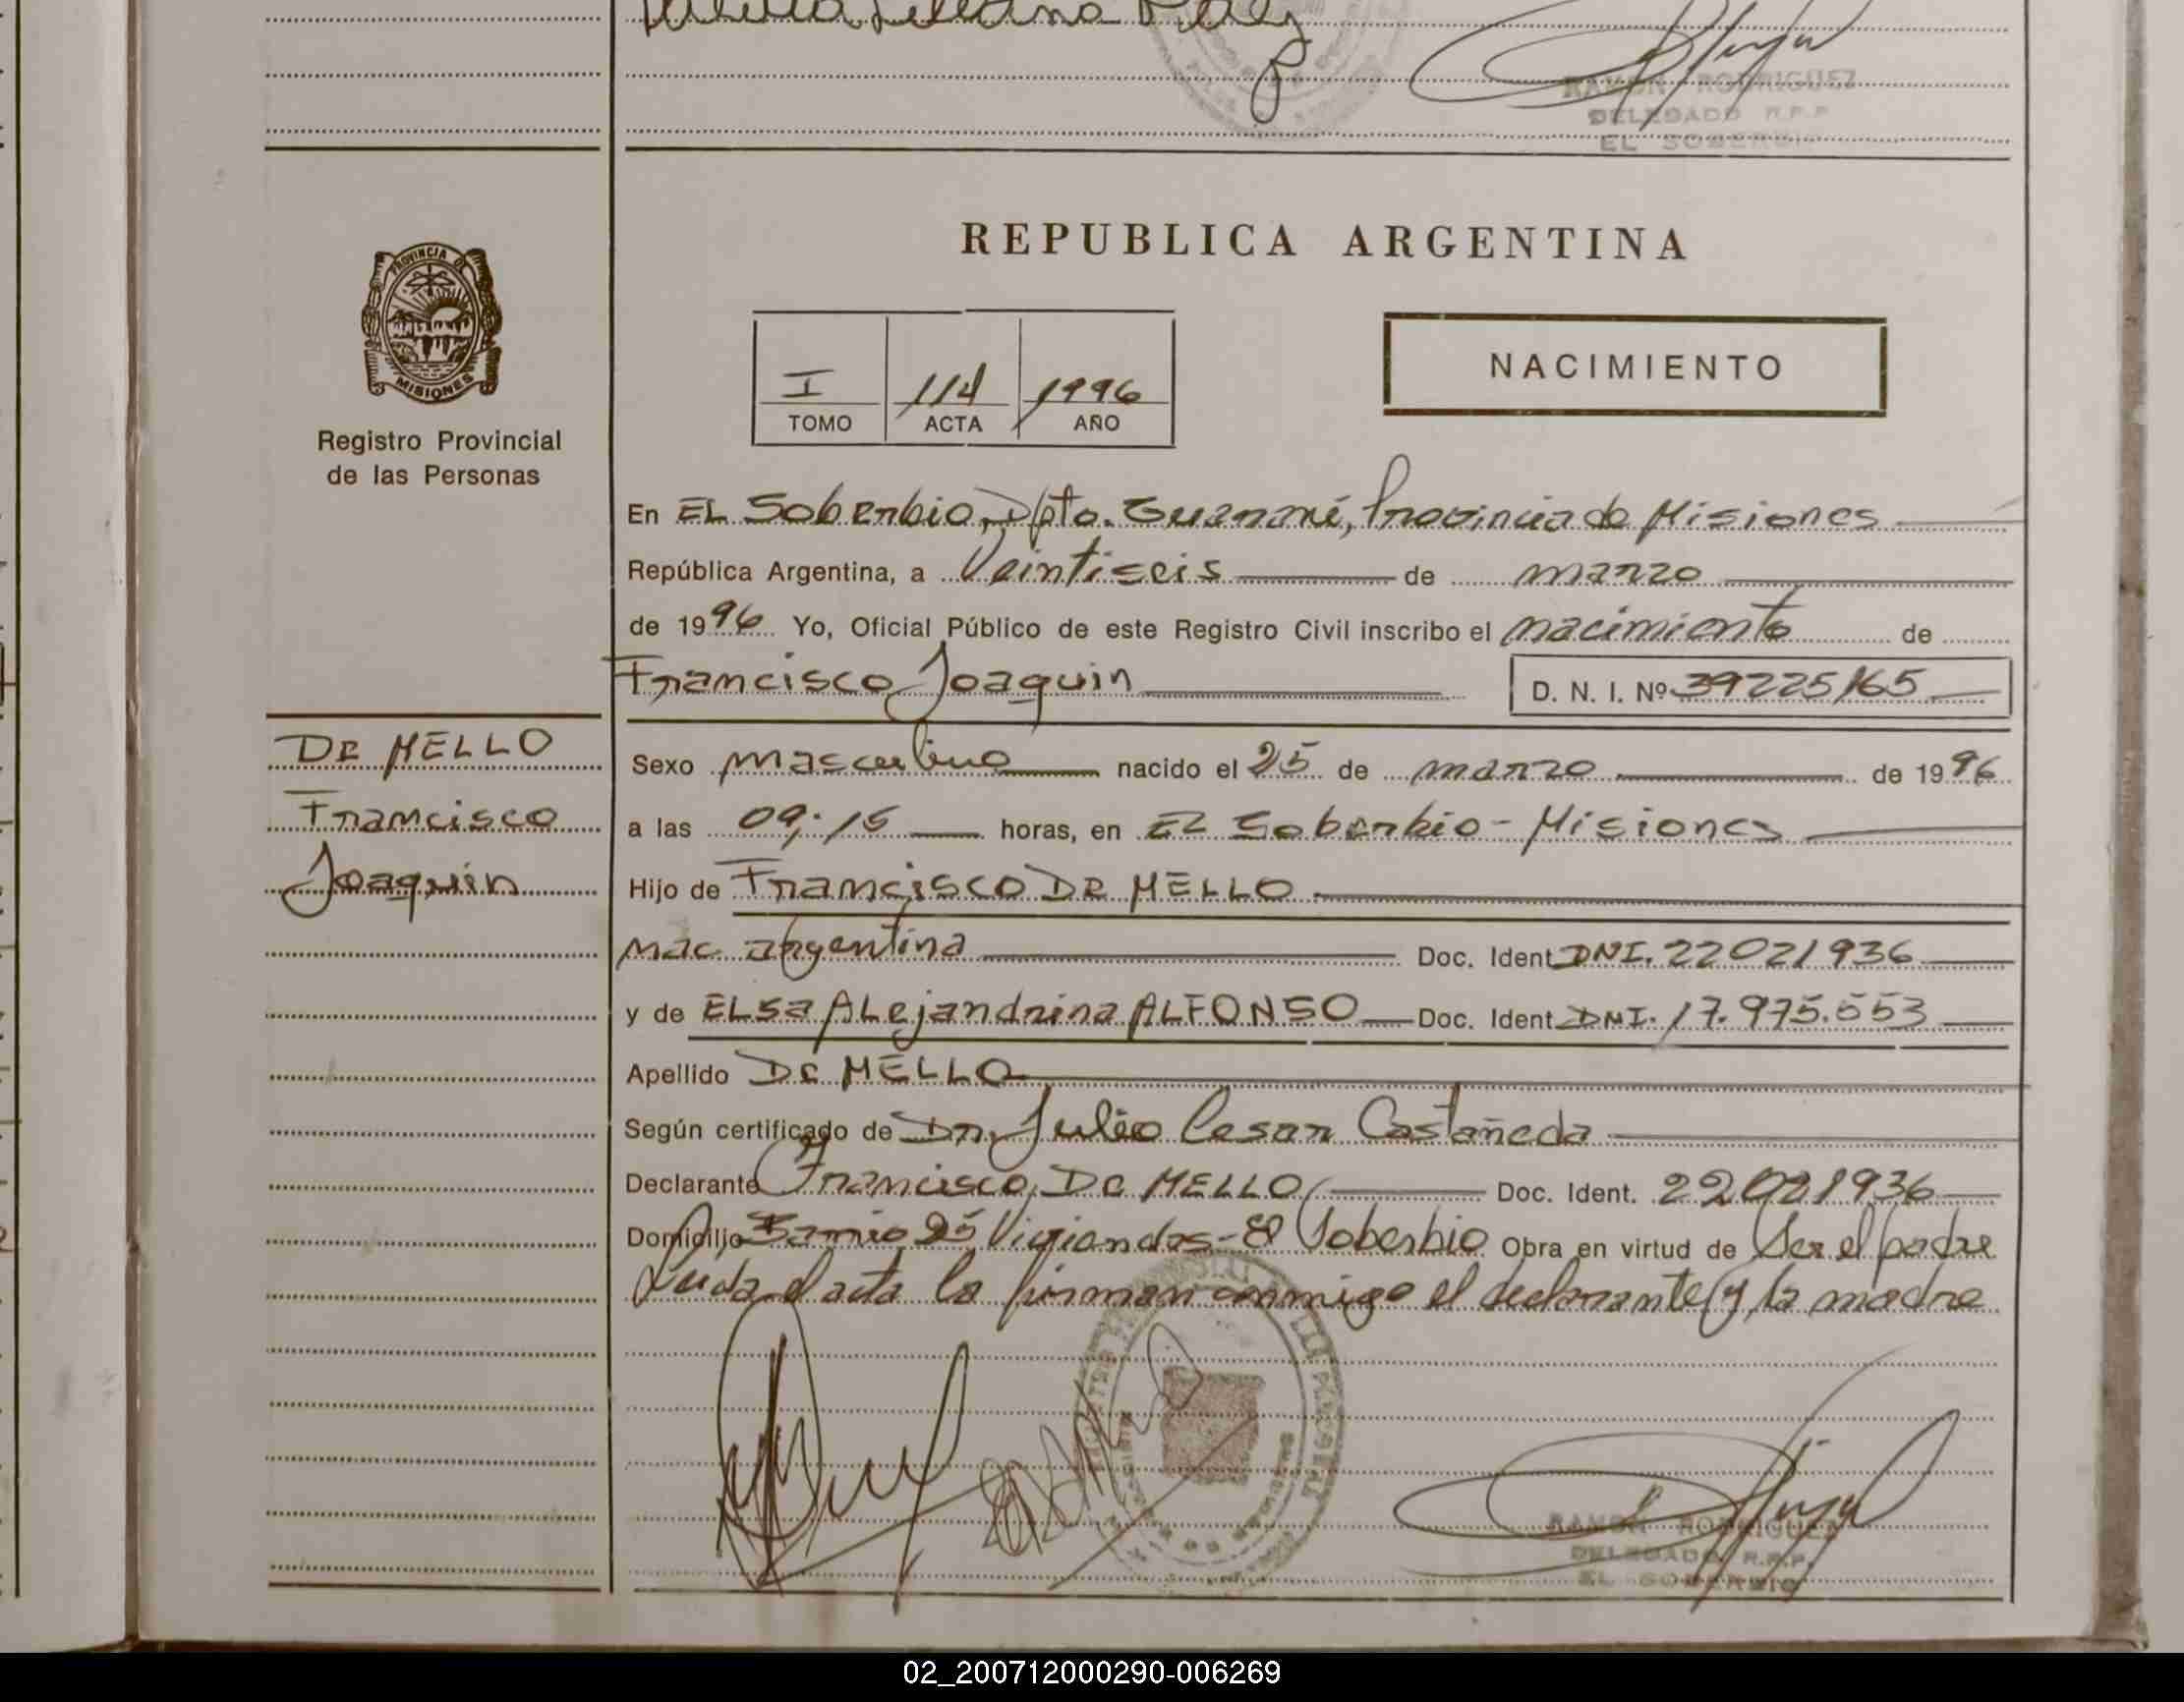 RAMON RODRIGUEZ
DELEGADO R.P.P
EL SOBERBIO
PROVINCIA DE
MISIONES
Registro Provincial
de las Personas
REPUBLICA ARGENTINA
I 114 1996
TOMO ACTA AÑO
NACIMIENTO
En EL Soberbio, Dpto. Guaraní, Provincia de Misiones
República Argentina, a Veintiseis de marzo
de 1996 Yo, Oficial Público de este Registro Civil inscribo el nacimiento de
Francisco Joaquin D. N. I. Nº 39225165
DE MELLO
Francisco
Joaquin
Sexo masculino nacido el 25 de marzo de 1996
a las 09:15 horas, en El Soberbio - Misiones
Hijo de Francisco DE MELLO
nac argentina Doc. Ident DNI. 22021936
y de ELSa ALejandrina ALFONSO Doc. Ident DNI. 17.975.553
Apellido De MELLO
Según certificado de Dr. Julio Cesar Castañeda
Declarante Francisco De MELLO Doc. Ident. 22021936
Domicilio Barrio 25 Viviendas - El Soberbio Obra en virtud de Ser el padre
Leida el acta la firman conmigo el declarante y la madre
RAMON RODRIGUEZ
DELEGADO R.P.P.
EL SOBERBIO
02_200712000290-006269